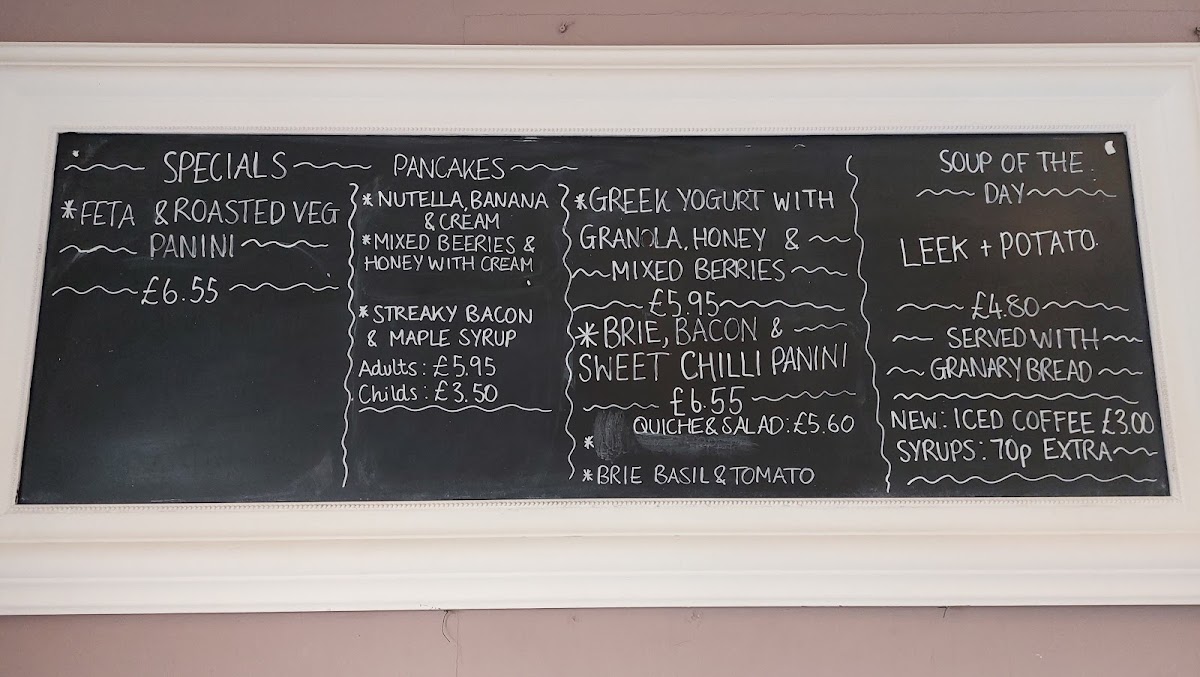 SPECIALS
*FETA & ROASTED VEG
PANINI
£6.55
PANCAKES
*NUTELLA, BANANA
& CREAM
*MIXED BEERIES &
HONEY WITH CREAM
*STREAKY BACON
& MAPLE SYRUP
Adults: £5.95
Childs: £3.50
*GREEK YOGURT WITH
GRANOLA, HONEY &
MIXED BERRIES
£5.95
*BRIE, BACON &
SWEET CHILLI PANINI
£6.55
QUICHE & SALAD: £5.60
*
*BRIE BASIL & TOMATO
SOUP OF THE
DAY
LEEK + POTATO
£4.80
SERVED WITH
GRANARY BREAD
NEW: ICED COFFEE £3.00
SYRUPS: 70p EXTRA